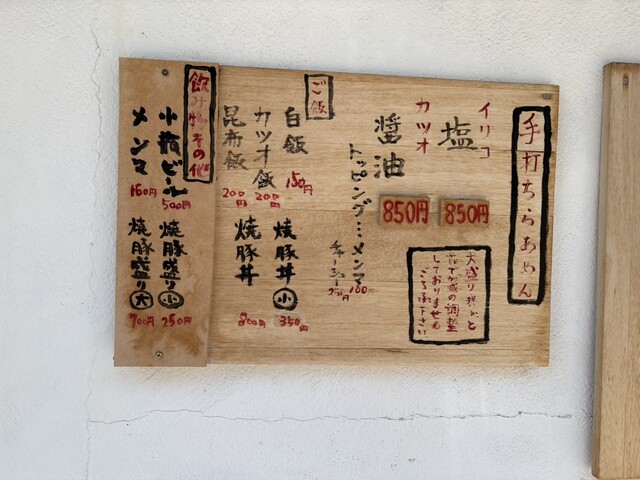 手打ちらあめん
イリコ
塩
850円
カツオ
醤油
850円
大盛り
茹で加減の調整
しておりません
ご了承下さい
トッピング…メンマ
160円
チャーシュー
250円
ご飯
白飯
150円
カツオ飯
200円
昆布飯
200円
焼豚丼 小
350円
焼豚丼
800円
飲み物その他
小瓶ビール
500円
メンマ
160円
焼豚盛り 小
250円
焼豚盛り 大
700円